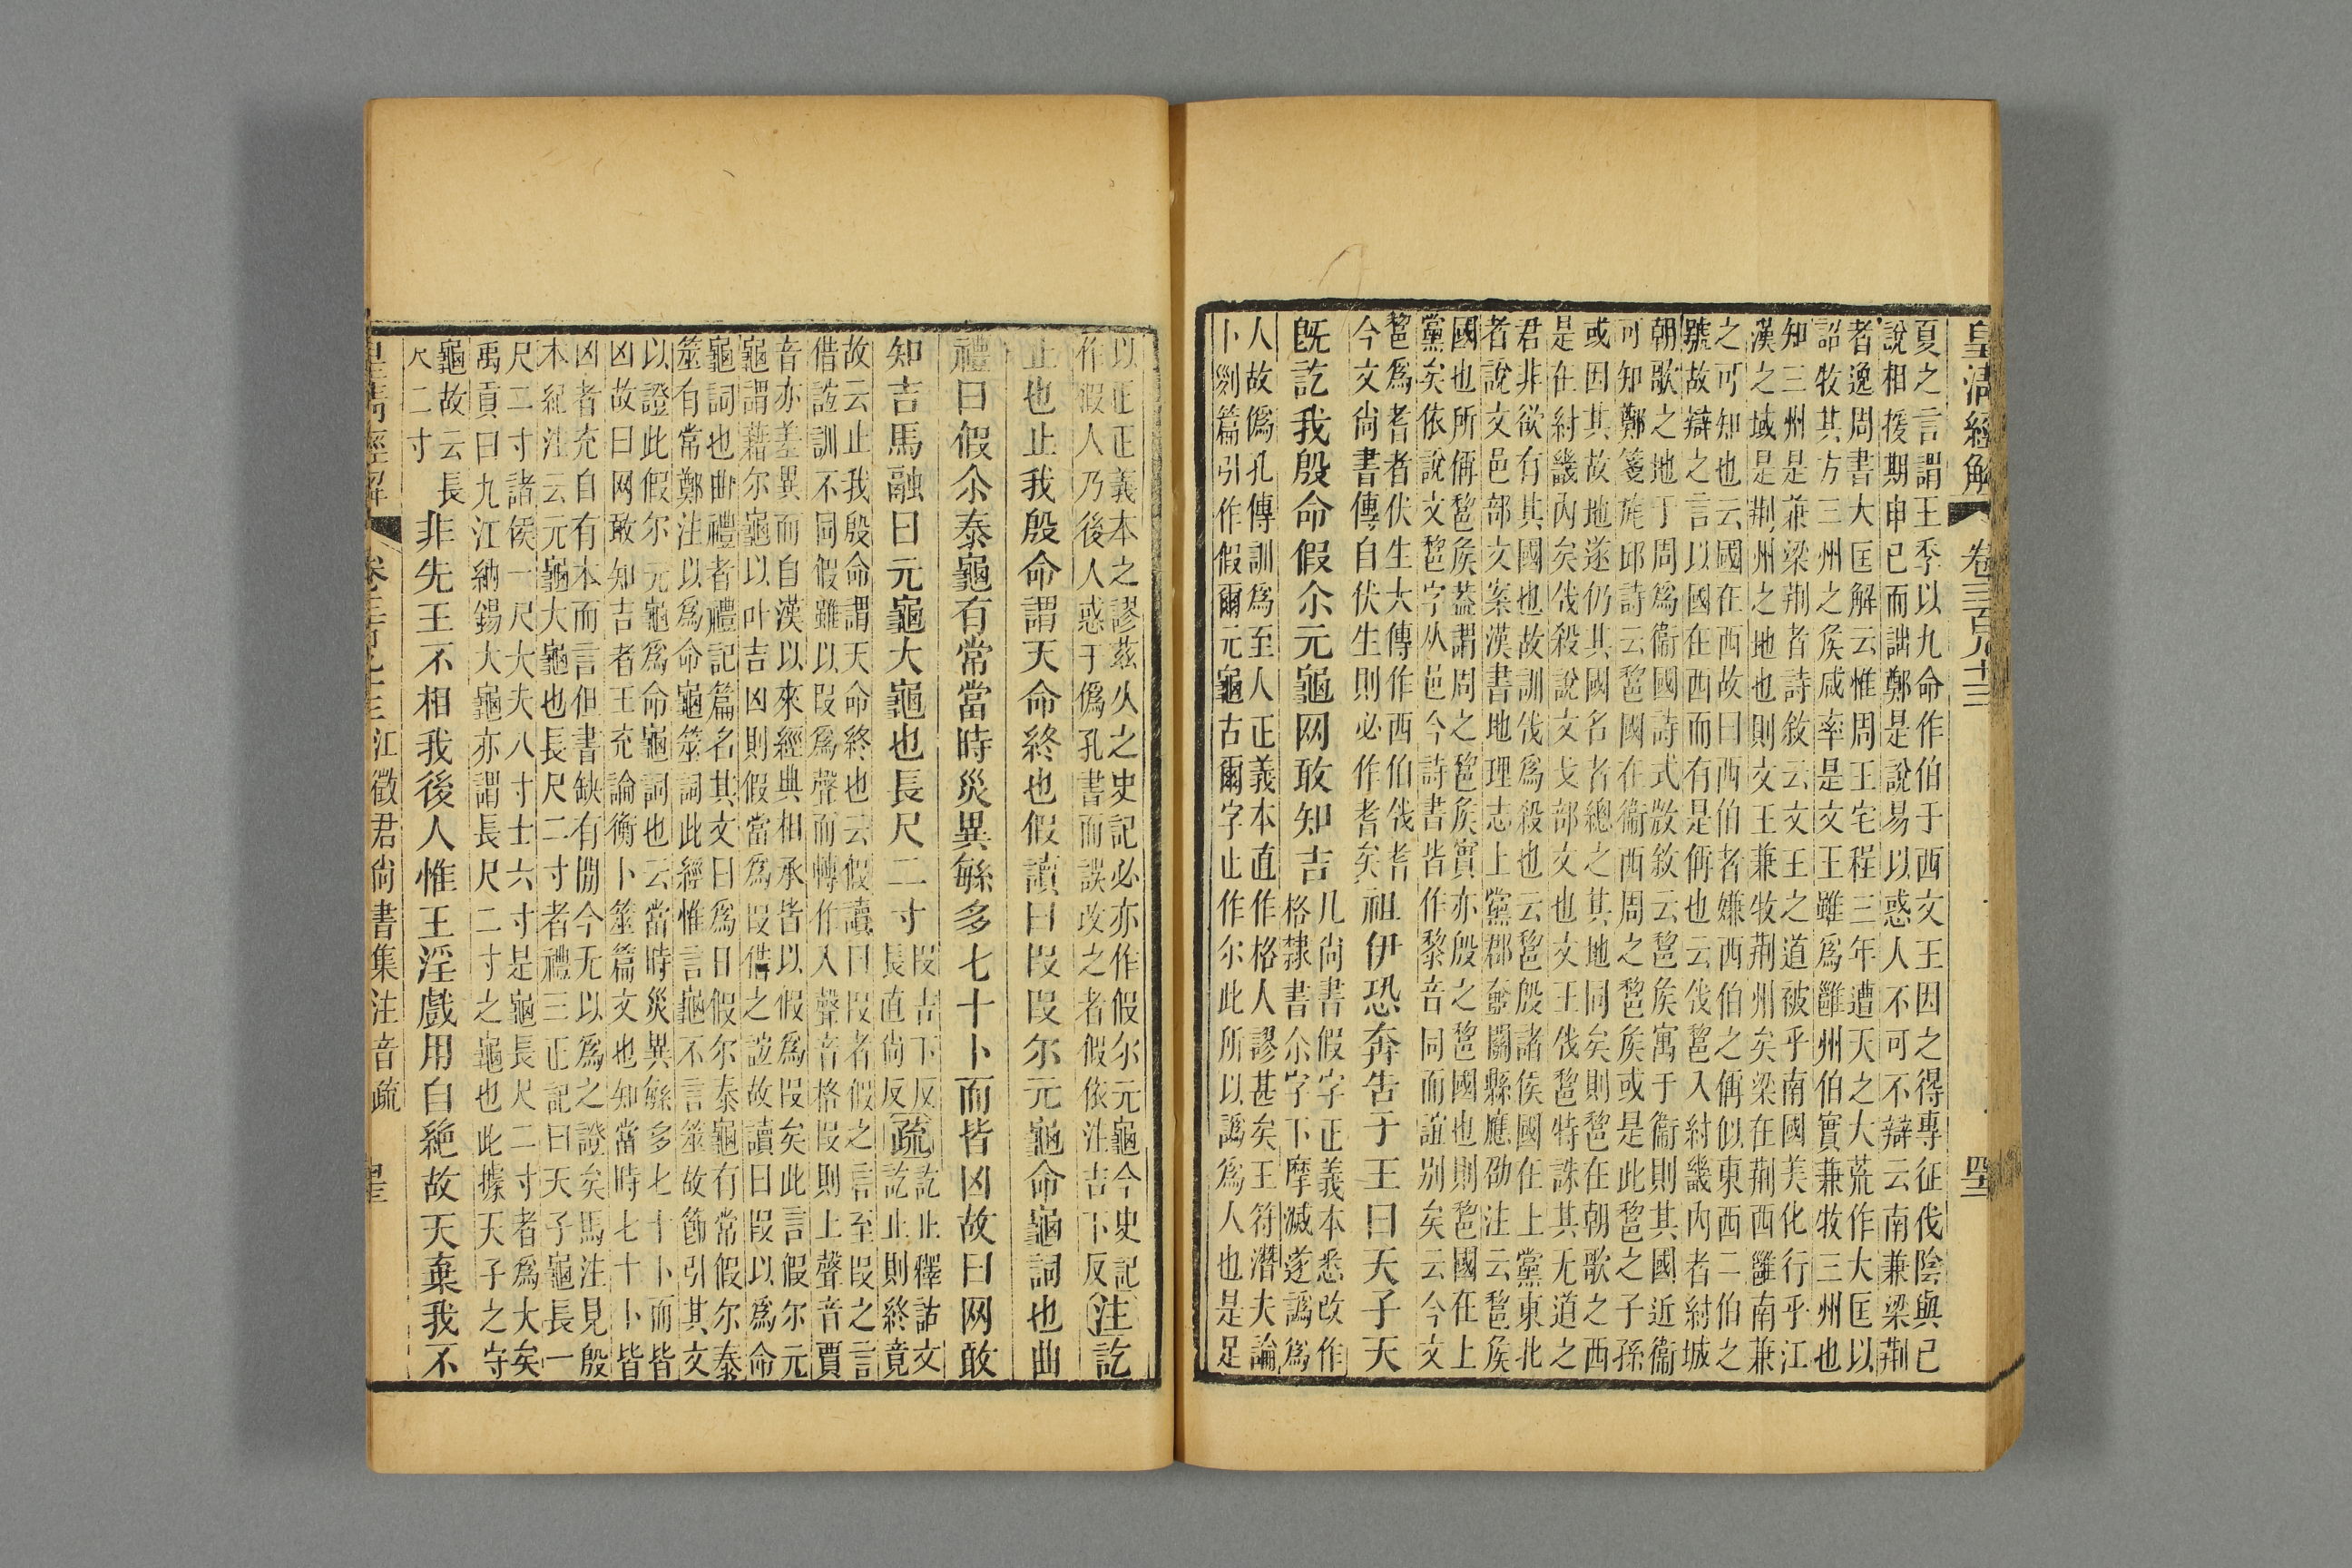 皇淸經解
卷三百九十三
夏之言謂王季以九命作伯于西文王因之得專征伐陰與己
說相援期申已而詘鄭是說易以惑人不可不辯云南兼梁荆
者逸周書大匡解云惟周王宅程三年遭天之大荒作大匡以
詔牧其方三州之矦咸率是文王雖爲雝州伯實兼牧三州也
知三州是兼梁荆者詩敘云文王之道被乎南國美化行乎江
漢之域是荆州之地也則文王兼牧荆州矣梁在荆西雝南兼
之可知也云國在西故曰西伯者嫌西伯之偁似東西二伯之
號故辯之言以國在西而有是偁也云伐䣛入紂畿内者紂城
朝歌之地于周爲衞國詩式敚敘云䣛矦寓于衞則其國近衞
可知鄭箋旄邱詩云䣛國在衞西周之䣛矦或是此䣛之子孫
或因其故地遂仍其國名者總之其地同矣則䣛在朝歌之西
是在紂畿内矣伐殺說文戈部文也文王伐䣛特誅其无道之
君非欲有其國也故訓伐爲殺也云䣛殷諸侯國在上黨東北
者說文邑部文案漢書地理志上黨郡壺關縣應劭注云䣛矦
國也所偁䣛矦葢謂周之䣛矦實亦殷之䣛國也則䣛國在上
黨矣依說文䣛字从邑今詩書皆作黎音同而誼别矣云今文
䣛爲耆者伏生大傳作西伯伐耆
今文尙書傳自伏生則必作耆矣
祖伊恐奔告于王曰天子天
旣訖我殷命假尒元龜网敢知吉
凡尙書假字正義本悉改作
格隸書尒字下摩滅遂譌爲
人故僞孔傳訓爲至人正義本直作格人謬甚矣王符潛夫論
卜㓨篇引作假爾元龜古爾字止作尔此所以譌爲人也是足
以正正義本之謬茲㕥之史記必亦作假尔元龜今史記
作假人乃後人惑于僞孔書而誤改之者假依注吉下反
注訖
止也止我殷命謂天命終也假讀曰叚叚尔元龜命龜詞也曲
禮曰假尒泰龜有常當時災異緐多七十卜而皆凶故曰网敢
知吉馬融曰元龜大龜也長尺二寸
叚吉下反
長直尙反
疏
訖止釋詁文
訖止則終竟
故云止我殷命謂天命終也云假讀曰叚者假之言至叚之言
借誼訓不同假雖以叚爲聲而轉作入聲音格叚則上聲音賈
音亦差異而自漢以來經典相承皆以假爲叚矣此言假尔元
龜謂藉尔龜以叶吉凶則假當爲叚借之誼故讀曰叚以爲命
龜詞也曲禮者禮記篇名其文曰爲日假尔泰龜有常假尔泰
筮有常鄭注以爲命龜筮詞此經惟言龜不言筮故節引其文
以證此假尔元龜爲命龜詞也云當時災異緐多七十卜而皆
凶故曰网敢知吉者王充論衡卜筮篇文也知當時七十卜皆
凶者充自有本而言但書缺有閒今无以爲之證矣馬注見殷
本紀注云元龜大龜也長尺二寸者禮三正記曰天子龜長一
尺二寸諸侯一尺大夫八寸士六寸是龜長尺二寸者爲大矣
禹貢曰九江納錫大龜亦謂長尺二寸之龜也此據天子之守
龜故云長
尺二寸
非先王不相我後人惟王淫戲用自絶故天棄我不
皇淸經解
卷三百九十三
江徵君尙書集注音疏